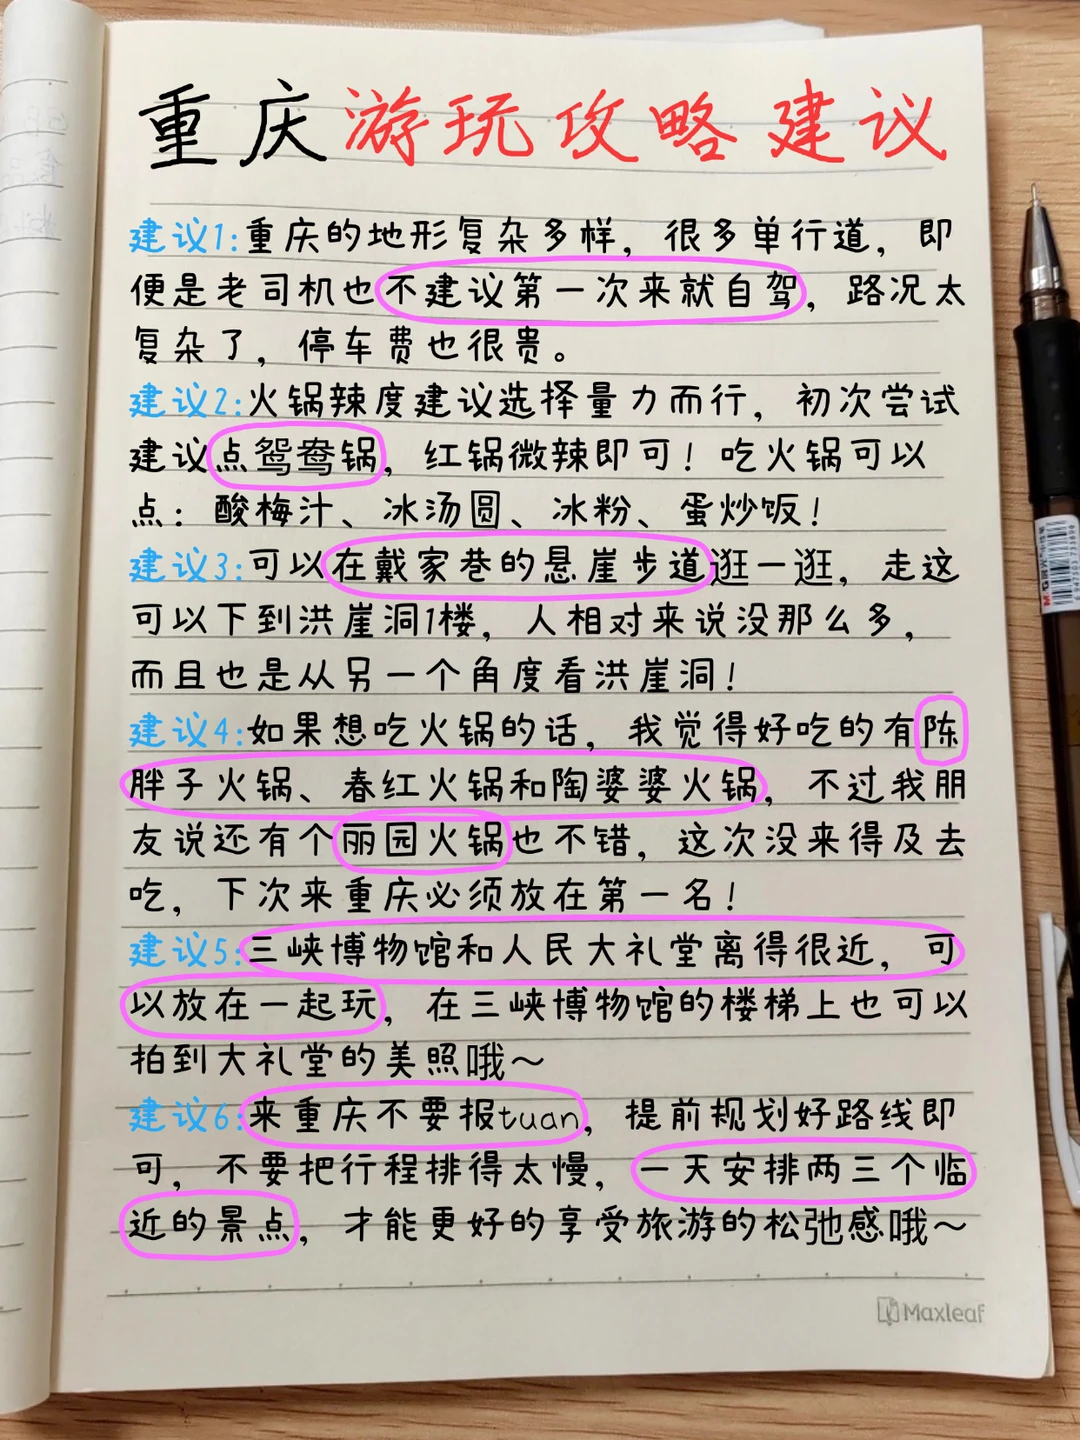 重庆游玩攻略建议
建议1:重庆的地形复杂多样，很多单行道，即
便是老司机也不建议第一次来就自驾，路况太
复杂了，停车费也很贵。
建议2:火锅辣度建议选择量力而行，初次尝试
建议点鸳鸯锅，红锅微辣即可！吃火锅可以
点：酸梅汁、冰汤圆、冰粉、蛋炒饭！
建议3:可以在戴家巷的悬崖步道逛一逛，走这
可以下到洪崖洞1楼，人相对来说没那么多，
而且也是从另一个角度看洪崖洞！
建议4:如果想吃火锅的话，我觉得好吃的有陈
胖子火锅、春红火锅和陶婆婆火锅，不过我朋
友说还有个丽园火锅也不错，这次没来得及去
吃，下次来重庆必须放在第一名！
建议5:三峡博物馆和人民大礼堂离得很近，可
以放在一起玩，在三峡博物馆的楼梯上也可以
拍到大礼堂的美照哦～
建议6:来重庆不要报tuan，提前规划好路线即
可，不要把行程排得太慢，一天安排两三个临
近的景点，才能更好的享受旅游的松弛感哦～
Maxleaf